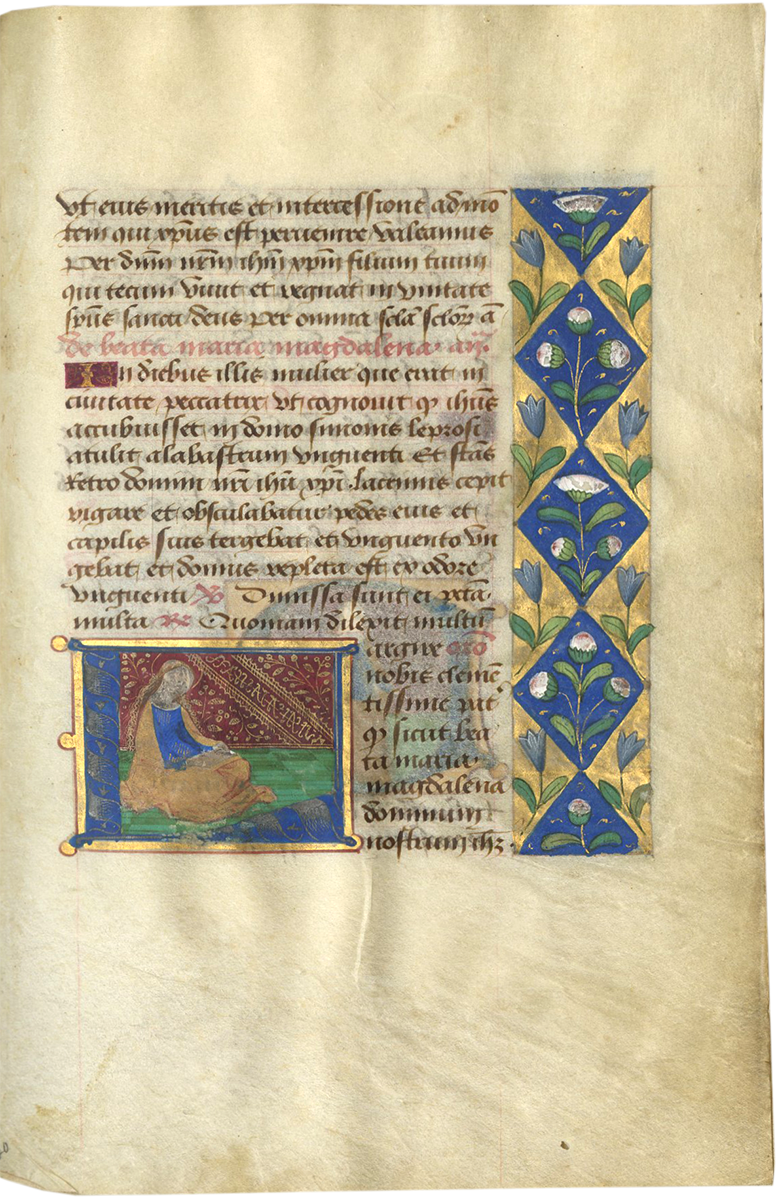 Vt eius meritis et intercessione ad mõ
tem qui xp̃us est peruenire valeamus
Per dñm nr̃m ihm̃ xpm̃ filium tuum
qui tecum Viuit et regnat in vnitate
spũs sancti deus Per omnia scl̃a sclõꝝ a᷉
de beata maria magdalena. añ.
In diebus illis mulier que erat in
ciuitate peccatrix vt cognouit ꝙ ihũs
accubuisset in domo simonis leprosi
atulit alabastrum vnguenti Et stãs
Retro domini nr̃i ihũ xpĩ. Lacrimis cepit
rigare et obsculabatur pedes eius et
capilis suis tergebat et vnguento vn
gebat et domus repleta est ex odore
Vnguenti Dimissa sunt ei pctã.
multa Quoniam dilexit multũ
Largire orõ
nobis cleme᷉
tissime pat᷑
ꝙ sicut bea
ta maria
magdalena
dominum
nostrum ihꝫ.